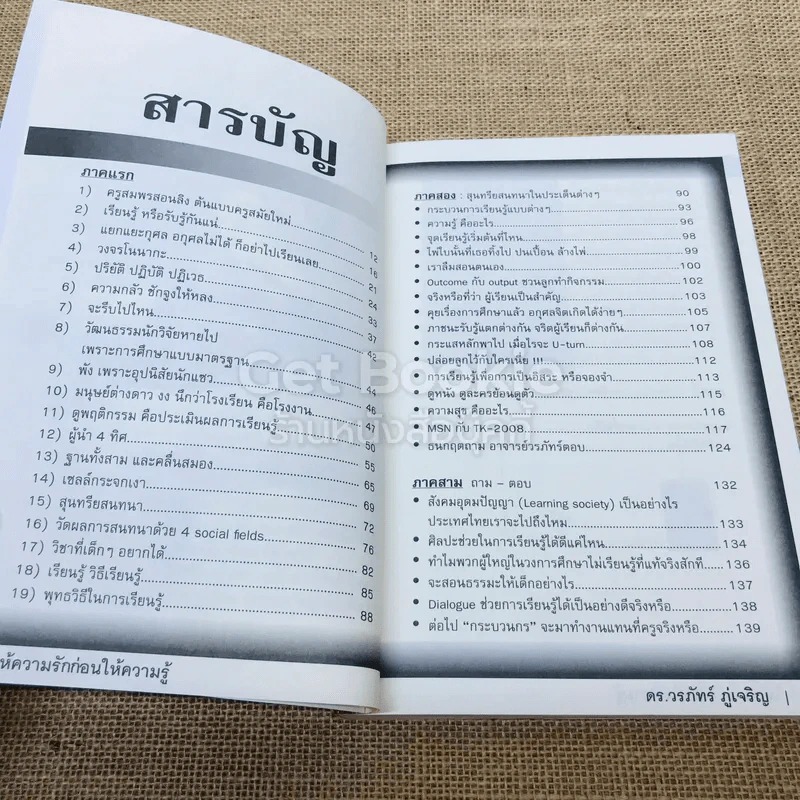 สารบัญ
ภาคแรก
1) ครูสมพรสอนลิง ต้นแบบครูสมัยใหม่ 12
2) เรียนรู้ หรือรับรู้กันแน่ 16
3) แยกแยะกุศล อกุศลไม่ได้ ก็อย่าไปเรียนเลย 21
4) วงจรโนนากะ 24
5) ปริยัติ ปฏิบัติ ปฏิเวธ 33
6) ความกลัว ชักจูงให้หลง 37
7) จะรีบไปไหน
8) วัฒนธรรมนักวิจัยหายไป 42
เพราะการศึกษาแบบมาตรฐาน 44
9) พัง เพราะอุปนิสัยนักแซว 46
10) มนุษย์ต่างดาว งง นึกว่าโรงเรียน คือโรงงาน 47
11) ดูพฤติกรรม คือประเมินผลการเรียนรู้ 50
12) ผู้นำ 4 ทิศ 55
13) ฐานทั้งสาม และคลื่นสมอง 65
14) เซลล์กระจกเงา 69
15) สุนทรียสนทนา 72
16) วัดผลการสนทนาด้วย 4 social fields 76
17) วิชาที่เด็กๆ อยากได้ 82
18) เรียนรู้ วิธีเรียนรู้ 85
19) พุทธวิธีในการเรียนรู้ 88
ห้ความรักก่อนให้ความรู้
ภาคสอง : สุนทรียสนทนาในประเด็นต่างๆ 90
• กระบวนการเรียนรู้แบบต่างๆ 93
• ความรู้ คืออะไร 96
• จุดเรียนรู้เริ่มต้นที่ไหน 98
• ไพ่ใบนั้นที่เธอทิ้งไป ปนเปื้อน ล้างไพ่ 99
• เราลืมสอนตนเอง 100
• Outcome กับ output ชวนลูกทำกิจกรรม 102
• จริงหรือที่ว่า ผู้เรียนเป็นสำคัญ 103
• คุยเรื่องการศึกษาแล้ว อกุศลจิตเกิดได้ง่ายๆ 105
• ภาชนะรับรู้แตกต่างกัน จริตผู้เรียนก็ต่างกัน 107
• กระแสหลักพาไป เมื่อไรจะ U-turn 108
• ปล่อยลูกไว้กับใครเนี่ย !!! 112
• การเรียนรู้เพื่อการเป็นอิสระ หรือจองจำ 113
• ดูหนัง ดูละครย้อนดูตัว 115
• ความสุข คืออะไร 116
• MSN กับ TK-2008 117
• ธนกฤตถาม อาจารย์วรภัทร์ตอบ 124
ภาคสาม ถาม – ตอบ 132
• สังคมอุดมปัญญา (Learning society) เป็นอย่างไร
ประเทศไทยเราจะไปถึงไหม 133
• ศิลปะช่วยในการเรียนรู้ได้ดีแค่ไหน 134
• ทำไมพวกผู้ใหญ่ในวงการศึกษาไม่เรียนรู้ที่แท้จริงสักที 136
• จะสอนธรรมะให้เด็กอย่างไร 137
• Dialogue ช่วยการเรียนรู้ได้เป็นอย่างดีจริงหรือ 138
• ต่อไป “กระบวนกร” จะมาทำงานแทนที่ครูจริงหรือ 139
ดร.วรภัทร์ ภู่เจริญ |
Get Bookie
ร้านหนังสือบุ๊คกี้